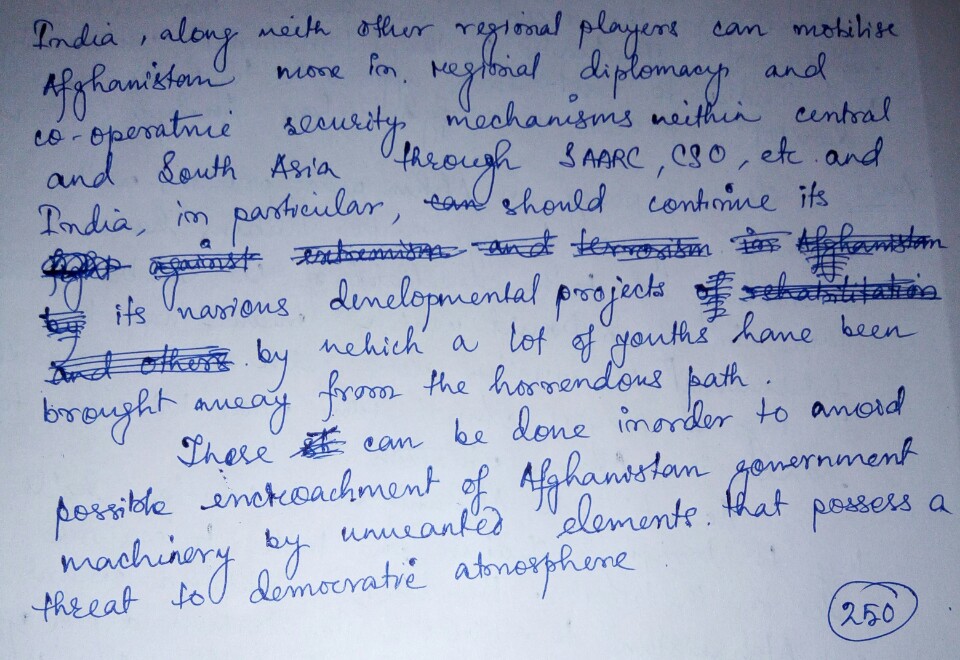 India, along with other regional players can mobilise
Afghanistan more in regional diplomacy and
co-operative security mechanisms within central
and South Asia through SAARC, CSO, etc. and
India, in particular, can should continue its
fight against extremism and terrorism in Afghanistan
by its various developmental projects of rehabilitation
and others by which a lot of youths have been
brought away from the horrendous path.
These can be done inorder to avoid
possible encroachment of Afghanistan government
machinery by unwanted elements. that possess a
threat to democratic atmosphere
250